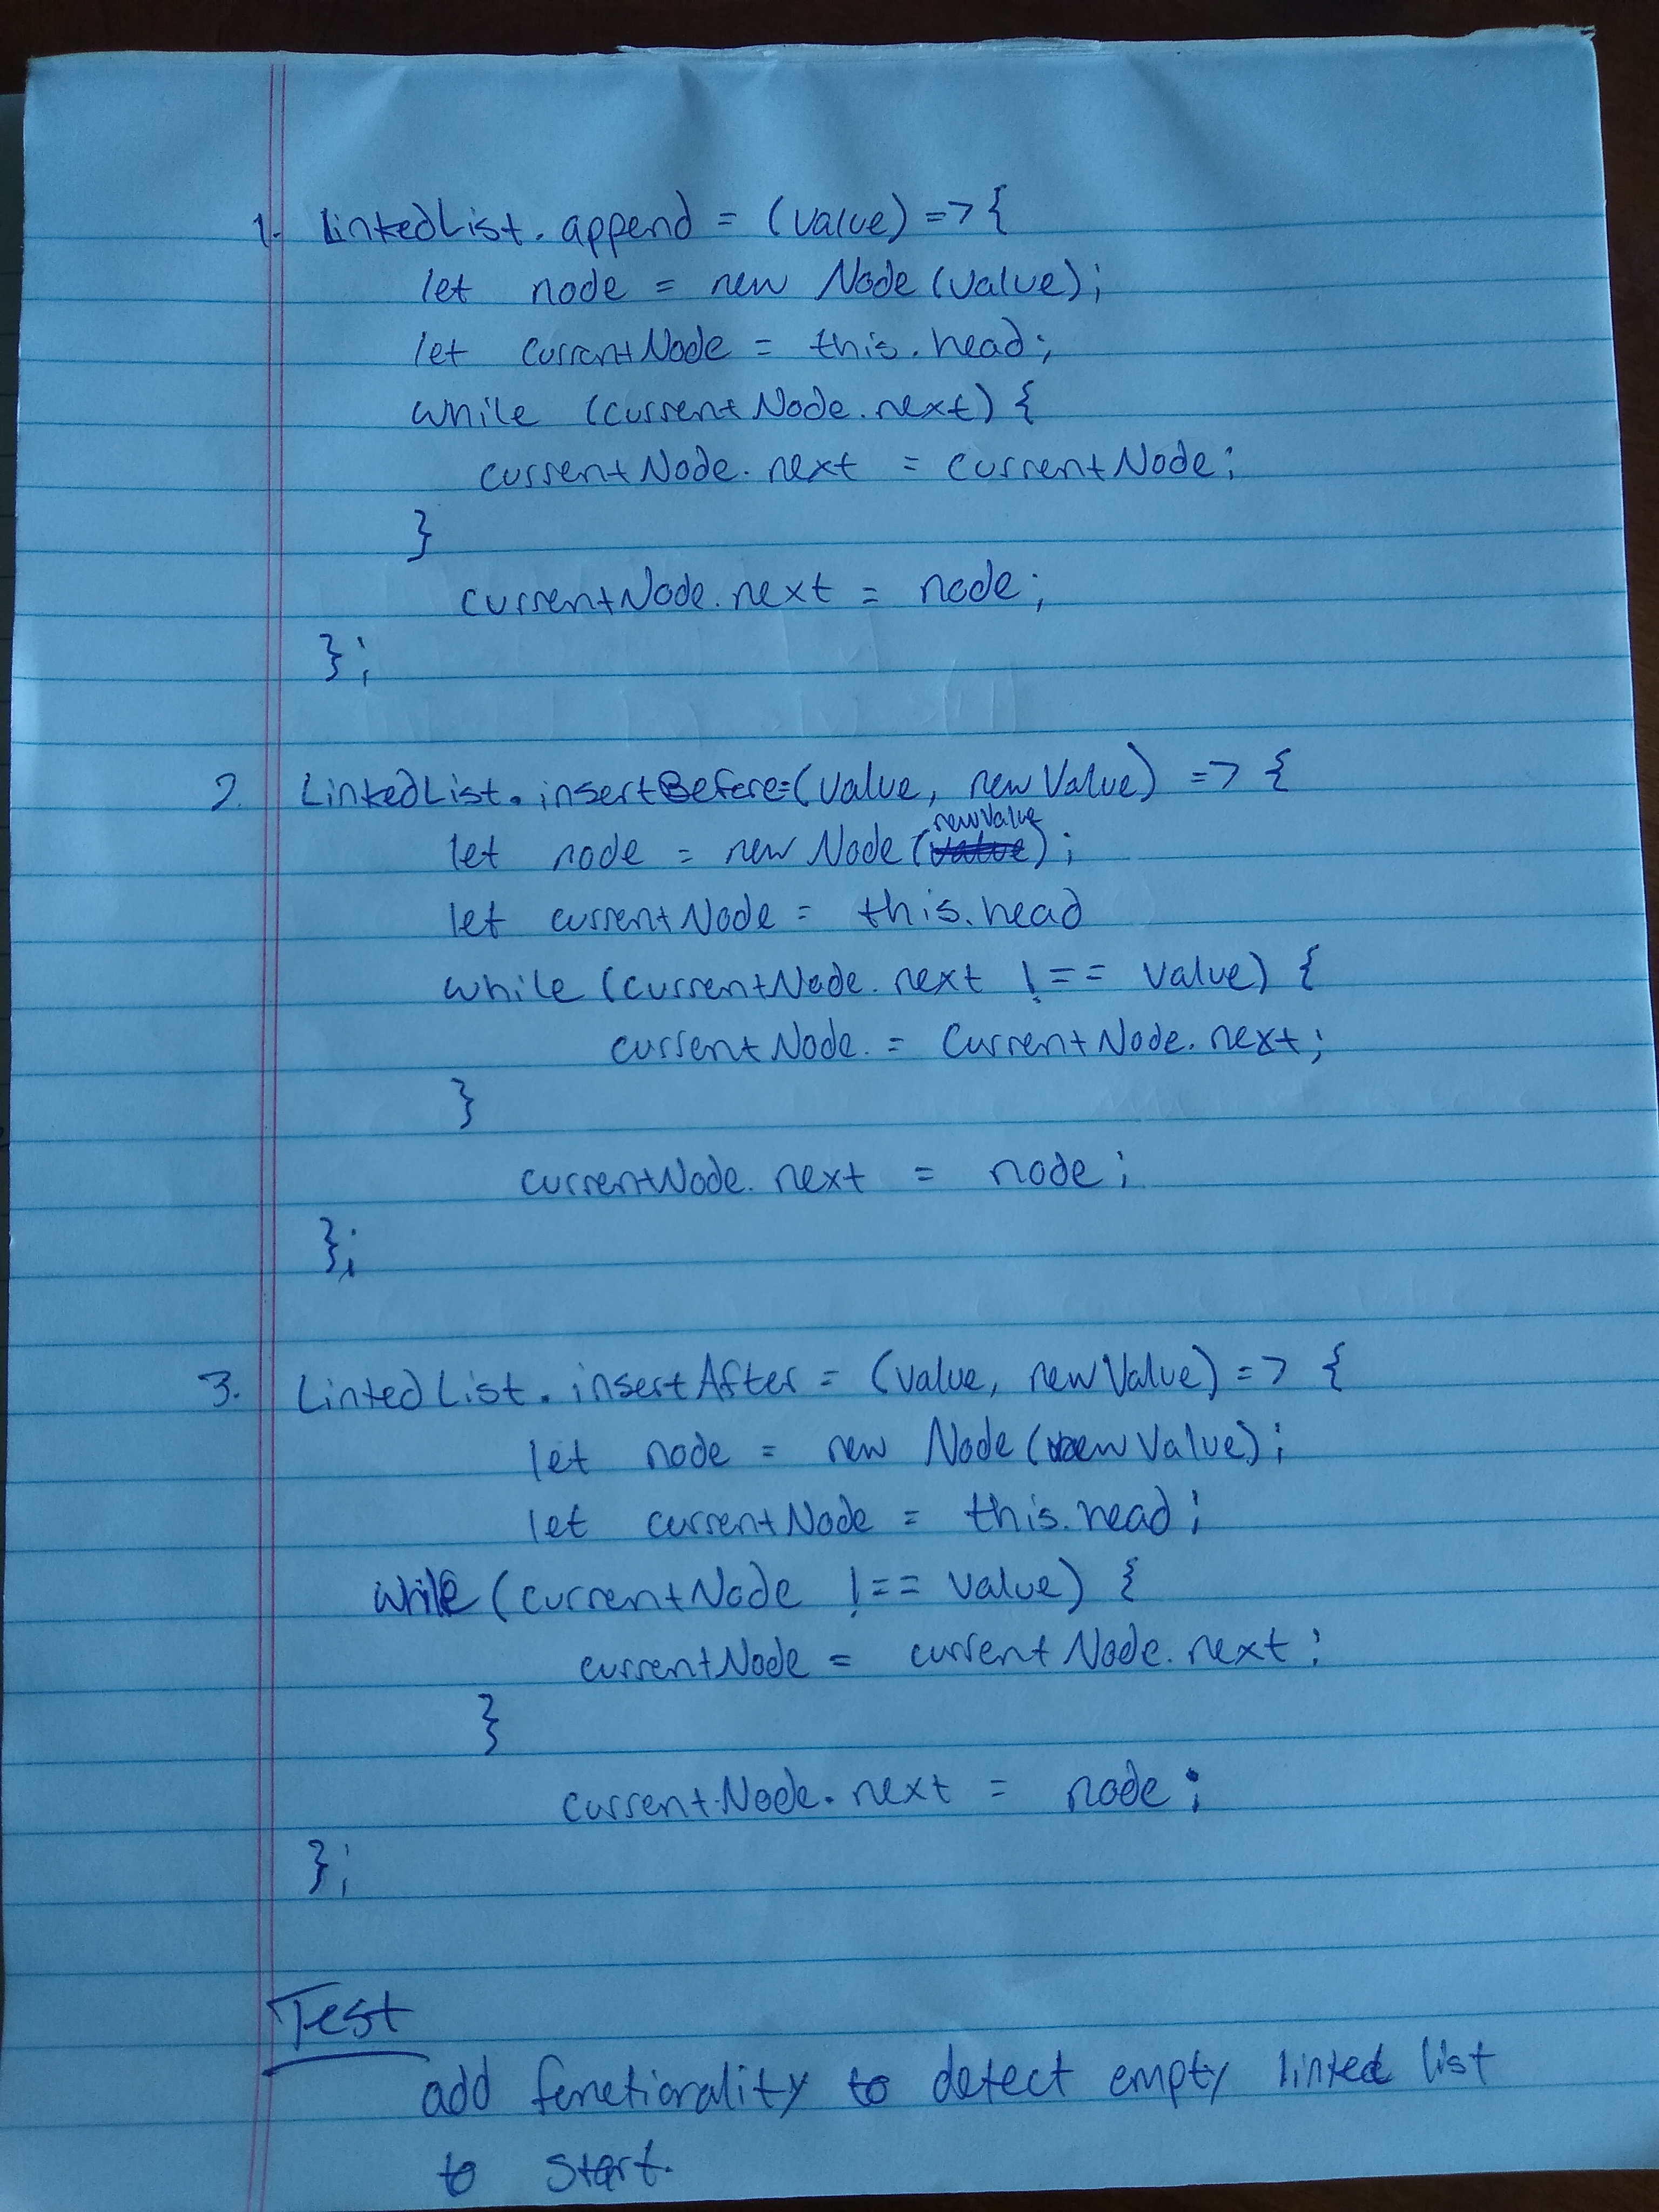 1. LinkedList.append = (value) => {
let node = new Node(value);
let currentNode = this.head;
while (currentNode.next) {
currentNode.next = currentNode;
}
currentNode.next = node;
};
2. LinkedList.insertBefore=(value, newValue) => {
newValue
let node = new Node(value);
let currentNode = this.head
while (currentNode.next !== value) {
currentNode. = currentNode.next;
}
currentNode.next = node;
};
3. LinkedList.insertAfter = (value, newValue) => {
let node = new Node(newValue);
let currentNode = this.head;
while (currentNode !== value) {
currentNode = currentNode.next;
}
currentNode.next = node;
};
Test
add functionality to detect empty linked list
to start.